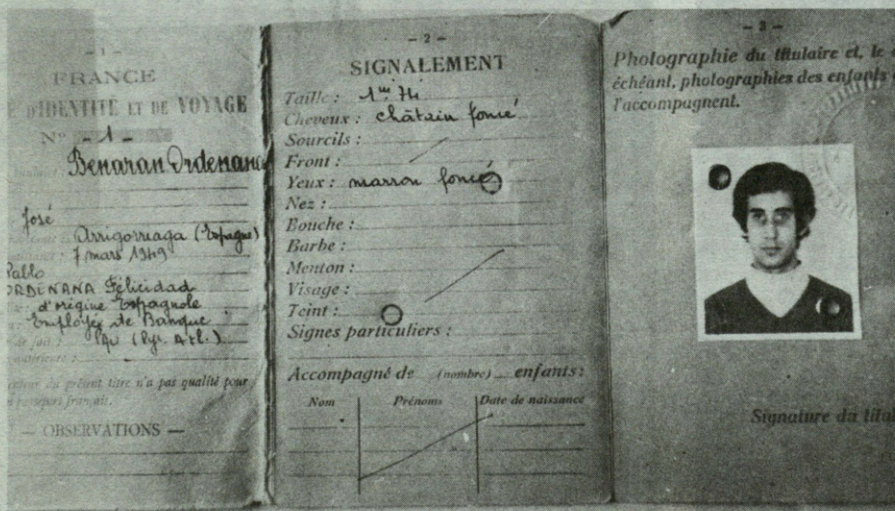 - 1 -
FRANCE
E D'IDENTITÉ ET DE VOYAGE
N° - 1 -
Benaran Ordenana
José
Arrigorriaga (Espagne)
7 mars 1949
Pablo
ORDENANA Félicidad
d'origine Espagnole
Employé de Banque
de fait : Pau (Pyr. Atl.)
antérieure :
du présent titre n'a pas qualité pour
passeport français.
— OBSERVATIONS —
- 2 -
SIGNALEMENT
Taille : 1m,74
Cheveux : châtain foncé
Sourcils :
Front :
Yeux : marron foncé
Nez :
Bouche :
Barbe :
Menton :
Visage :
Teint :
Signes particuliers :
Accompagné de (nombre) enfants :
Nom Prénoms Date de naissance
- 3 -
Photographie du titulaire et, le
échéant, photographies des enfants
l'accompagnent.
Signature du titul